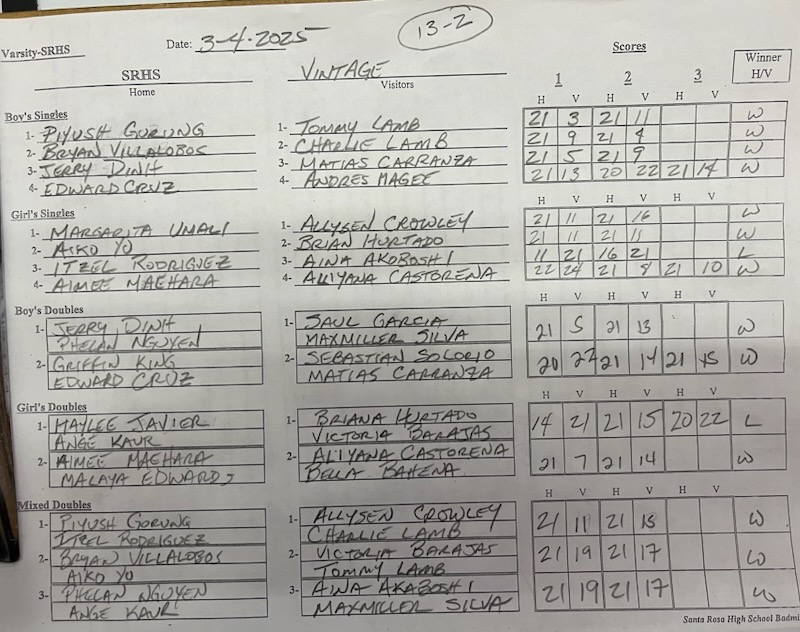 Varsity-SRHS Date: 3-4-2025 13-2
SRHS VINTAGE Scores Winner
Home Visitors 1 2 3 H/V
H V H V H V
Boy's Singles
1- PIYUSH GURUNG 1- TOMMY LAMB 21 3 21 11 W
2- BRYAN VILLALOBOS 2- CHARLIE LAMB 21 9 21 4 W
3- JERRY DINH 3- MATIAS CARRANZA 21 5 21 9 W
4- EDWARD CRUZ 4- ANDRES MAGEE 21 13 20 22 21 14 W
Girl's Singles H V H V H V
1- MARGARITA UMALI 1- ALLYSEN CROWLEY 21 11 21 16 W
2- AIKO YO 2- BRIAN HURTADO 21 11 21 11 W
3- ITZEL RODRIGUEZ 3- AINA AKOBOSHI 11 21 16 21 L
4- AIMEE MAEHARA 4- ALLIYANA CASTORENA 22 24 21 8 21 10 W
Boy's Doubles H V H V H V
1- JERRY DINH 1- SAUL GARCIA 21 5 21 13 W
PHELAN NGUYEN MAXMILLER SILVA
2- GRIFFIN KING 2- SEBASTIAN SOLORIO 20 22 21 14 21 15 W
EDWARD CRUZ MATIAS CARRANZA
Girl's Doubles H V H V H V
1- HAYLEE JAVIER 1- BRIANA HURTADO 14 21 21 15 20 22 L
ANGE KAUR VICTORIA BARAJAS
2- AIMEE MAEHARA 2- ALIYANA CASTORENA 21 7 21 14 W
MALAYA EDWARDS BELLA BAHENA
Mixed Doubles H V H V H V
1- PIYUSH GORUNG 1- ALLYSEN CROWLEY 21 11 21 15 W
ITZEL RODRIGUEZ CHARLIE LAMB
2- BRYAN VILLALOBOS 2- VICTORIA BARAJAS 21 19 21 17 W
AIKO YO TOMMY LAMB
3- PHELAN NGUYEN 3- AINA AKABOSHI 21 19 21 17 W
ANGE KAUR MAXMILLER SILVA
Santa Rosa High School Badmi